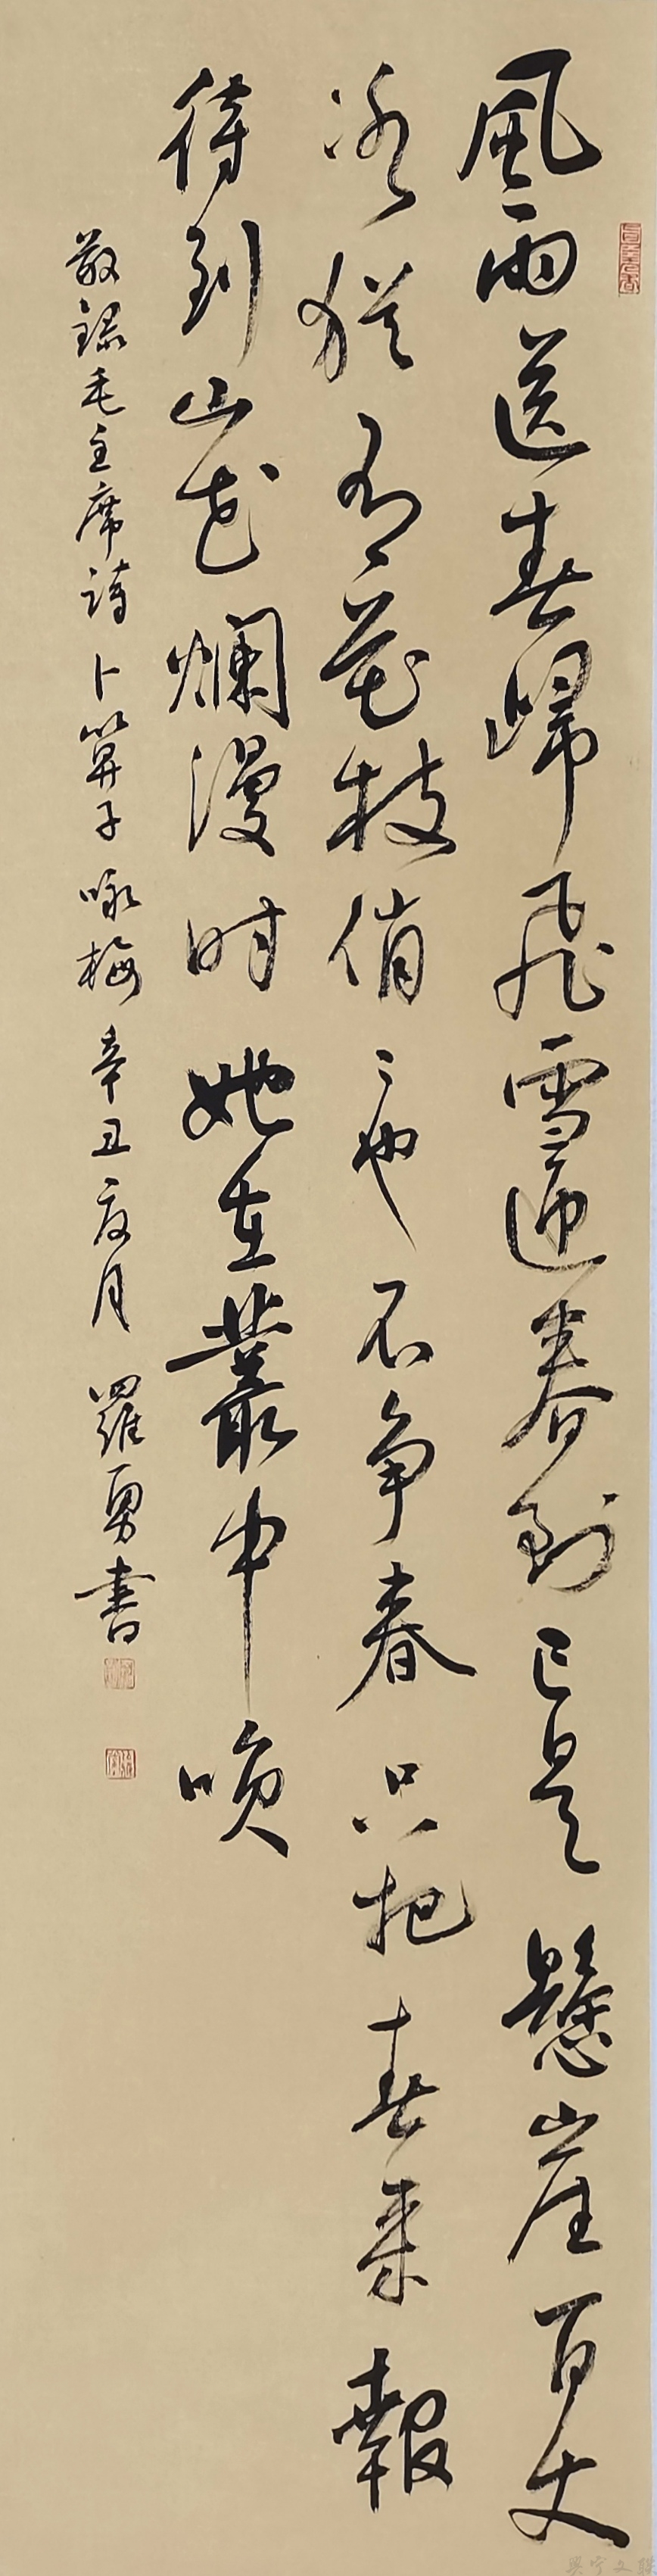 風雨送春歸飛雪迎春到已是懸崖百丈
冰猶有花枝俏〻也不争春只把春来報
待到山花爛漫时她在叢中咲
敬録毛主席詩卜算子咏梅辛丑夏月羅勇書